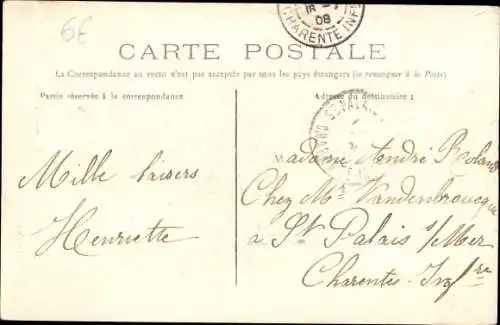 6€
18
08
CHARENTE INFRE
CARTE POSTALE
La Correspondance au recto n'est pas acceptée par tous les pays étrangers (se renseigner à la Poste)
Partie réservée à la correspondance
Adresse du destinataire :
ST PALAIS
Mille baisers
Henriette
Madame André Roland
Chez M Vandenbroucque
à St Palais s/Mer
Charente-Infre